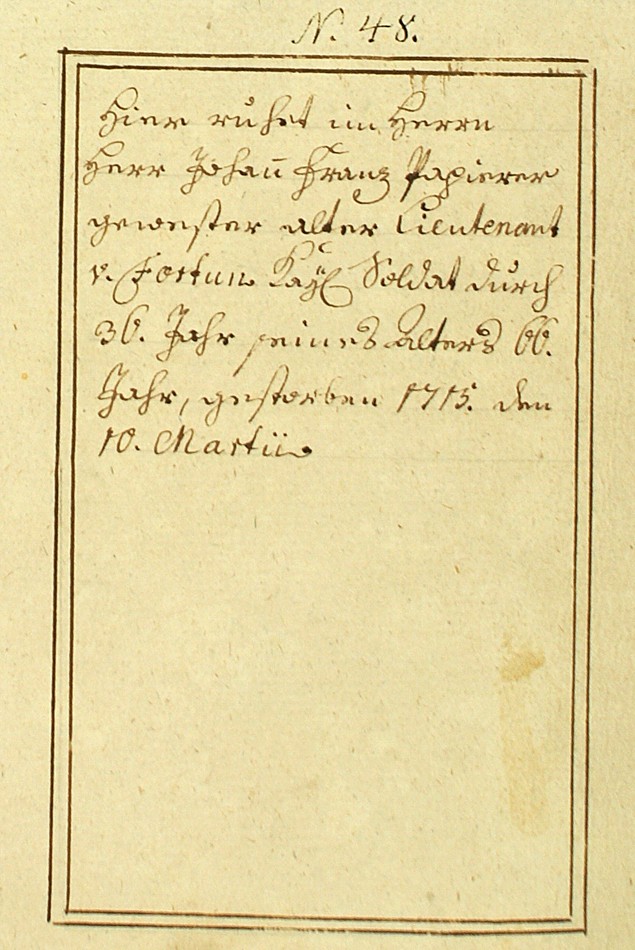 N. 48.
Hier ruhet im Herrn
Herr Johañ Franz Papierer
gewester alter Lieutenant
v. Fortun Kaÿl Soldat durch
36. Jahr seines Alters 66.
Jahr, gestorben 1715. den
10. Martii